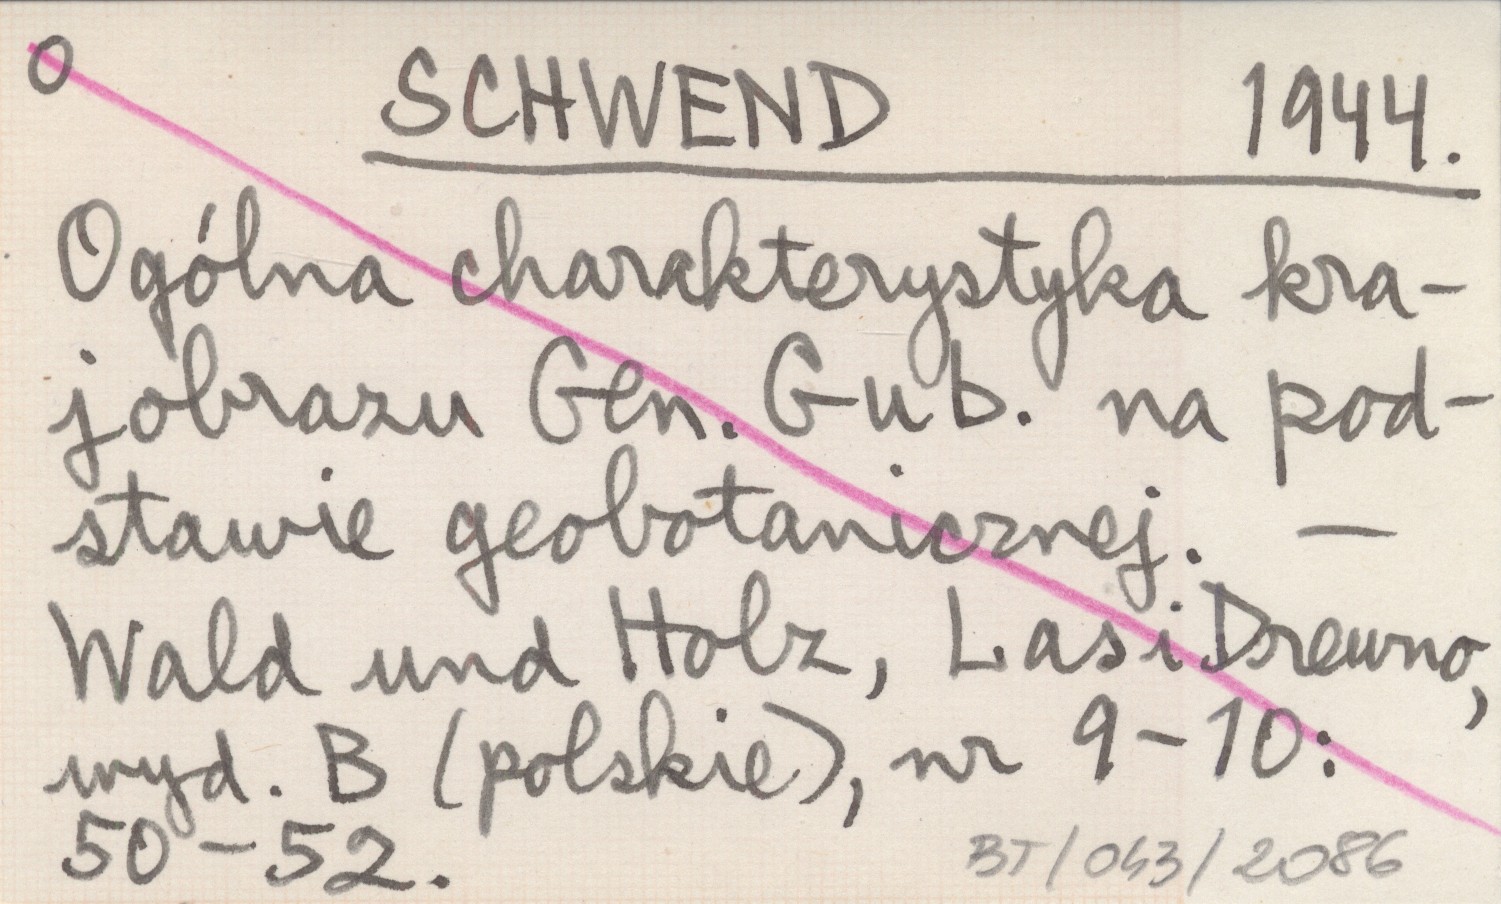 O SCHWEND 1944.
Ogólna charakterystyka kra-
jobrazu Gen. Gub. na pod-
stawie geobotanicznej. —
Wald und Holz, Las i Drewno,
wyd. B (polskie), nr 9-10:
50-52.
BT/043/2086